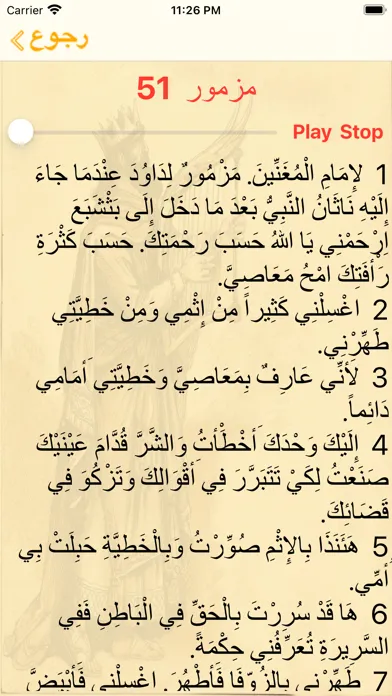 Carrier 11:26 PM
رجوع
مزمور 51
Play Stop
1 لإِمَامِ الْمُغَنِّينَ. مَزْمُورٌ لِدَاوُدَ عِنْدَمَا جَاءَ
إِلَيْهِ نَاثَانُ النَّبِيُّ بَعْدَ مَا دَخَلَ إِلَى بَثْشَبَعَ
اِرْحَمْنِي يَا اللهُ حَسَبَ رَحْمَتِكَ. حَسَبَ كَثْرَةِ
رَأْفَتِكَ امْحُ مَعَاصِيَّ.
2 اغْسِلْنِي كَثِيراً مِنْ إِثْمِي وَمِنْ خَطِيَّتِي
طَهِّرْنِي.
3 لأَنِّي عَارِفٌ بِمَعَاصِيَّ وَخَطِيَّتِي أَمَامِي
دَائِماً.
4 إِلَيْكَ وَحْدَكَ أَخْطَأْتُ وَالشَّرَّ قُدَّامَ عَيْنَيْكَ
صَنَعْتُ لِكَيْ تَتَبَرَّرَ فِي أَقْوَالِكَ وَتَزْكُوَ فِي
قَضَائِكَ.
5 هَئَنَذَا بِالإِثْمِ صُوِّرْتُ وَبِالْخَطِيَّةِ حَبِلَتْ بِي
أُمِّي.
6 هَا قَدْ سُرِرْتَ بِالْحَقِّ فِي الْبَاطِنِ فَفِي
السَّرِيرَةِ تُعَرِّفُنِي حِكْمَةً.
7 طَهِّرْنِي بِالزُّوفَا فَأَطْهُرَ. اغْسِلْنِي فَأَبْيَضَّ